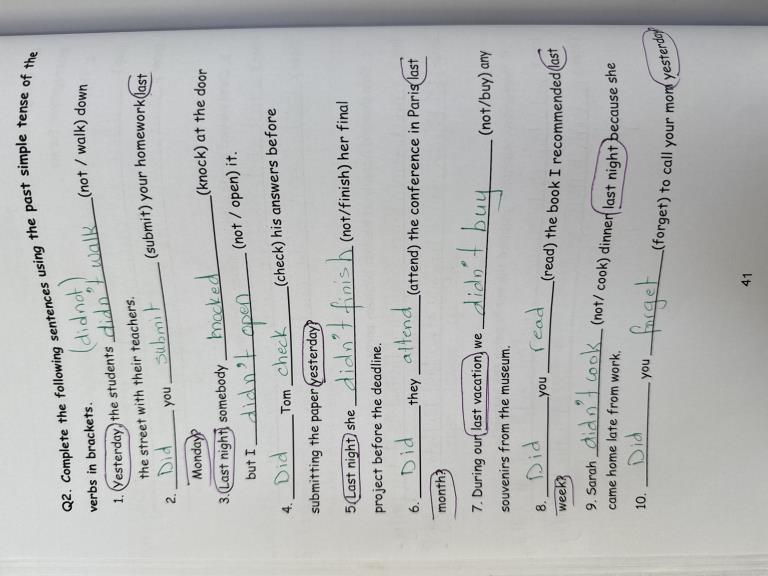 Q2. Complete the following sentences using the past simple tense of the
verbs in brackets. (didnot)
1. Yesterday, the students didn't walk (not / walk) down
the street with their teachers.
2. Did you submit (submit) your homework last
Monday?
3. Last night, somebody knocked (knock) at the door
but I didn't open (not / open) it.
4. Did Tom check (check) his answers before
submitting the paper yesterday?
5. Last night, she didn't finish (not/finish) her final
project before the deadline.
6. Did they attend (attend) the conference in Paris last
month?
7. During our last vacation, we didn't buy (not/buy) any
souvenirs from the museum.
8. Did you read (read) the book I recommended last
week?
9. Sarah didn't cook (not/ cook) dinner last night because she
came home late from work.
10. Did you forget (forget) to call your mom yesterday?
41